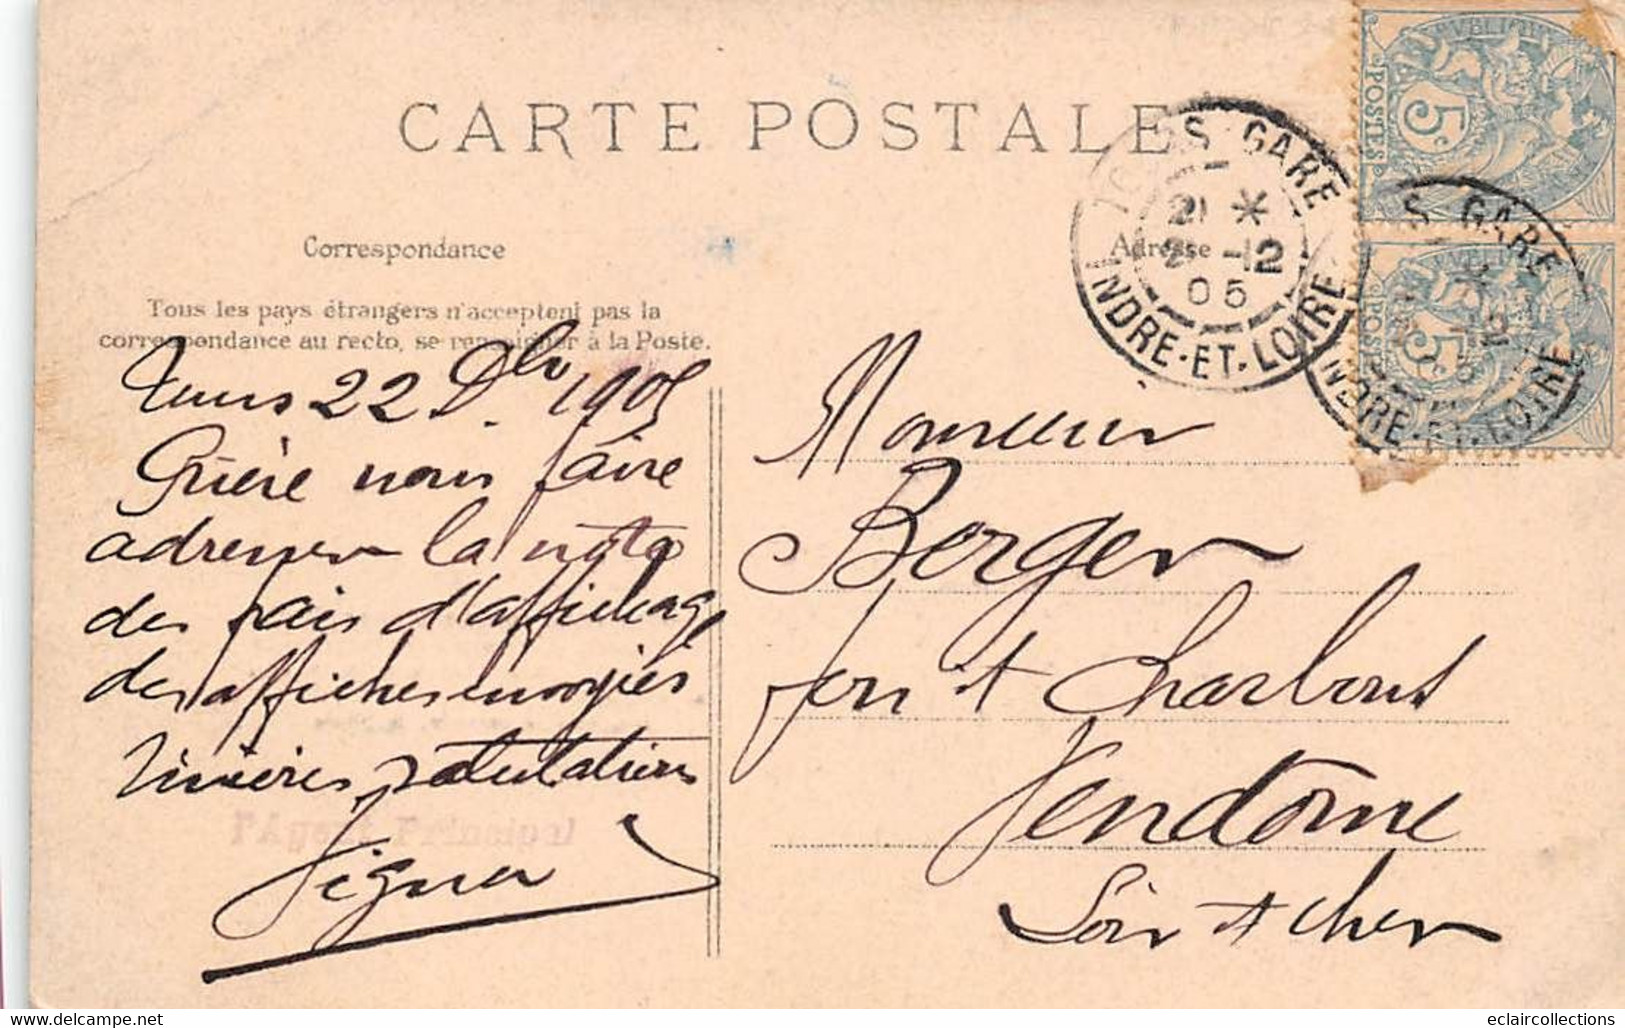 CARTE POSTALE
Correspondance
Adresse
Tous les pays étrangers n'acceptent pas la
correspondance au recto, se renseigner à la Poste.
TOURS GARE
21 *
2 -12
05
INDRE-ET-LOIRE
POSTES
5c
S GARE
INDRE-ET-LOIRE
POSTES
5c
Tours 22 Dbre 1905
Prière nous faire
adresser la note
des frais d'affichage
des affiches envoyées
Sincères salutations
l'Agent Principal
Monsieur
Berger
fer et Charbons
Vendome
Loir et Cher
www.delcampe.net
eclaircollections